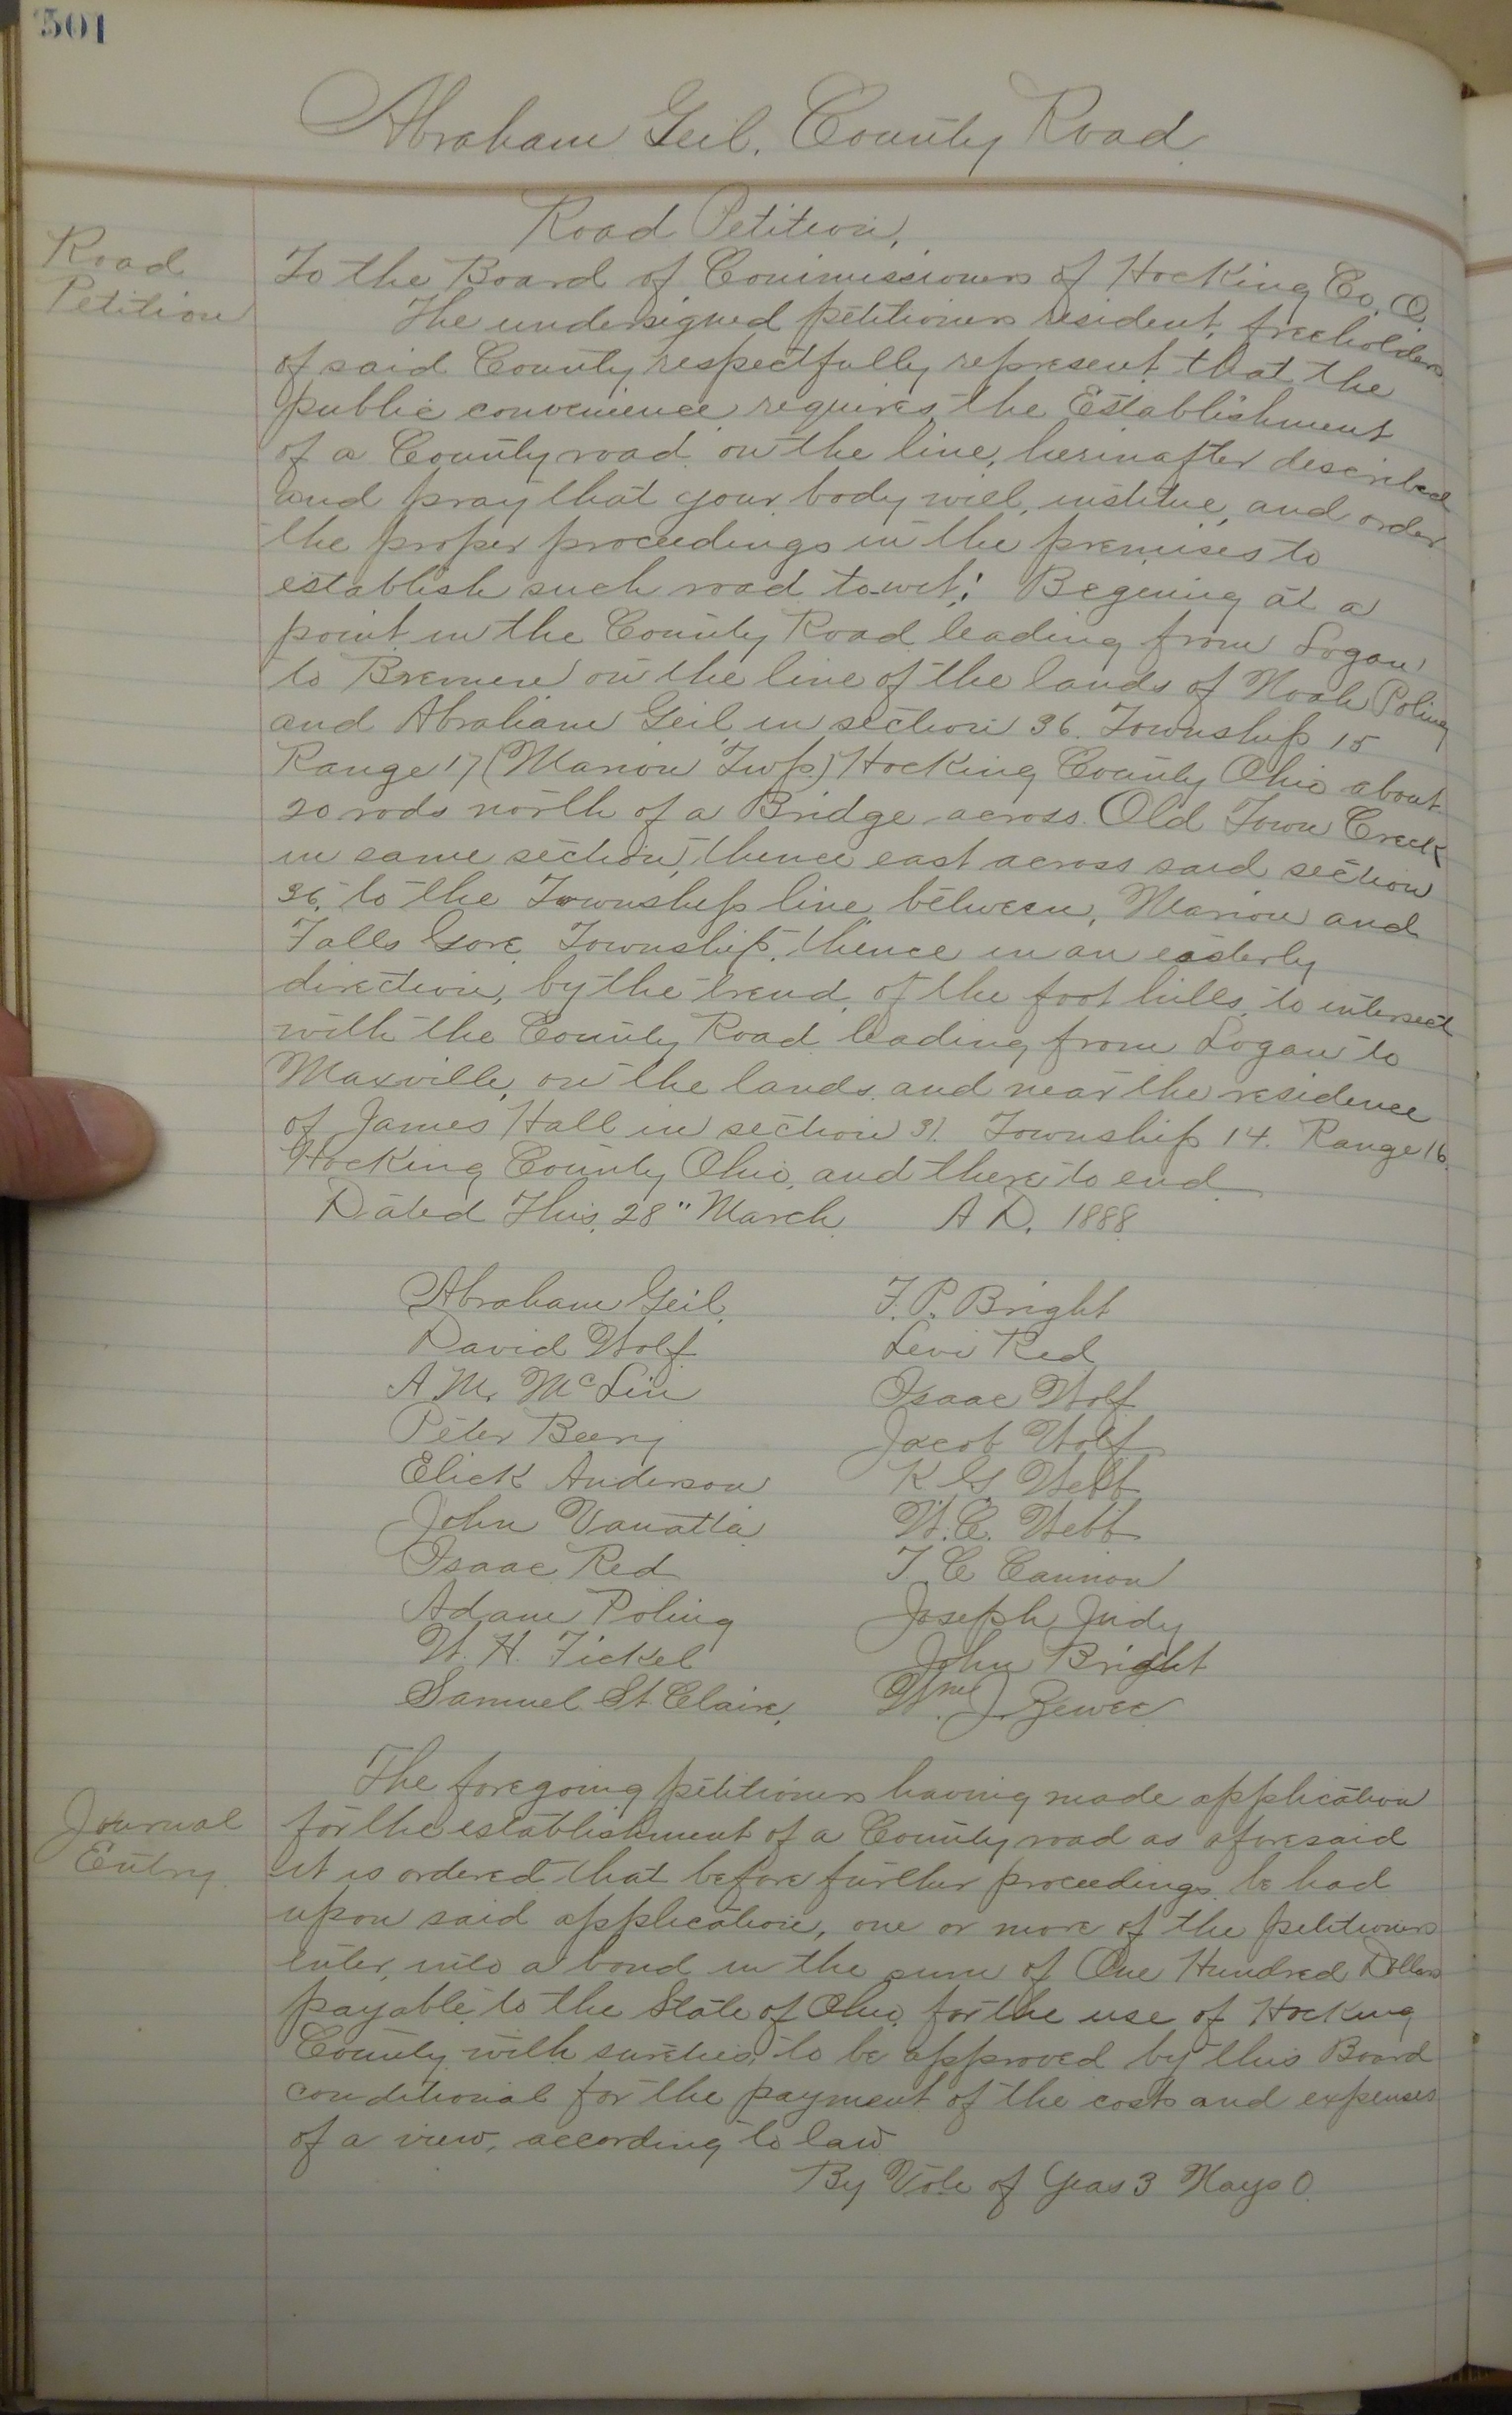 501
Abraham Geil, County Road
Road Petition,
Road
Petition
To the Board of Commissioners of Hocking Co. O.
The undersigned petitioners resident, freeholders
of said County respectfully represent that the
public convenience requires the Establishment
of a County road on the line, herinafter described
and pray that your body will, institue, and order
the proper proceedings in the premises to
establish such road to-wit: Begining at a
point in the County Road leading from Logan
to Bremen on the line of the lands of Noah Poling
and Abraham Geil in section 36. Township 15
Range 17 (Marion Twp.) Hocking County Ohio about
20 rods north of a Bridge across Old Town Creek
in same section, thence east across said section
36, to the Township line between, Marion and
Falls Gore Township, thence in an easterly
direction, by the trend, of the foot hills, to intersect
with the County Road leading from Logan to
Maxville, on the lands and near the residence
of James Hall in section 31. Township 14. Range 16
Hocking County Ohio, and there to end
Dated This, 28" March A.D. 1888
Abraham Geil, F. P. Bright
David Wolf Levi Red
A M. McLin Isaac Wolf
Peter Beery Jacob Wolf
Elick Anderson K G Webb
John Vanatta W. C. Webb
Isaac Red T C Cannon
Adam Poling Joseph Judy
W. H. Fickel John Bright
Samuel St. Claire, Wm J.
Journal
Entry
The foregoing petitioners having made application
for the establishment of a County road as aforesaid
it is ordered that before further proceedings be had
upon said application, one or more of the petitioners
enter, into a bond in the sum of One Hundred Dollars
payable to the State of Ohio, for the use of Hocking
County with sureties, to be approved by this Board
conditional for the payment of the costs and expenses
of a view, according to law
By Vote of Yeas 3 Nays 0